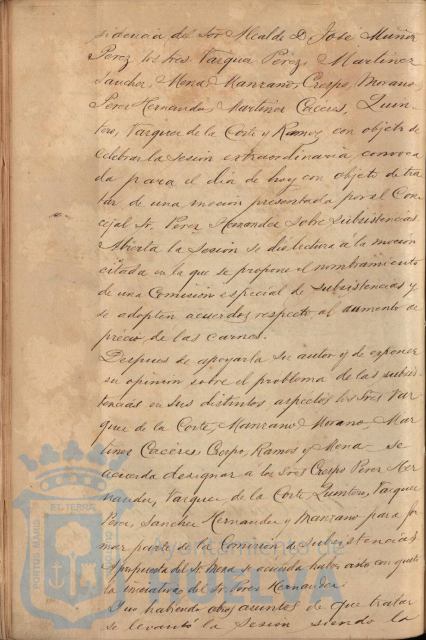 sidencia del Sor Alcalde D. José Muñoz
Perez los Sres Vazquez Perez, Martinez
Sanchez, Mena, Manzano, Crespo, Morano,
Perez Hernandez, Martinez Caceres, Quin-
tero, Vazquez de la Corte y Ramos, con objeto de
celebrar la sesión extraordinaria convoca
da para el dia de hoy con objeto de tra
tar de una moción presentada por el Con-
cejal Sr. Perez Hernandez sobre subsistencias
Abierta la sesión se dio lectura á la moción
citada en la que se propone el nombramiento
de una Comisión especial de subsistencias y
se adopten acuerdos respecto al aumento de
precio de las carnes.
Despues de apoyarla su autor y de exponer
su opinión sobre el problema de las subsis-
tencias en sus distintos aspectos los Sres Vaz-
quez de la Corte, Manzano, Morano, Mar-
tinez Caceres, Crespo, Ramos y Mena se
acuerda designar a los Sres Crespo, Perez Her
nandez, Vazquez de la Corte, Quintero, Vazquez
Perez, Sanchez Hernandez y Manzano para for
mar parte de la Comisión de subsistencias
A propuesta del Sr. Mena se acuerda haber visto con gusto
la iniciativa del Sr. Perez Hernandez.
Y no habiendo otros asuntos de que tratar
se levantó la sesión siendo la
PORTUS MARIS
ET TERRAE
Ayuntamiento de
HUELVA